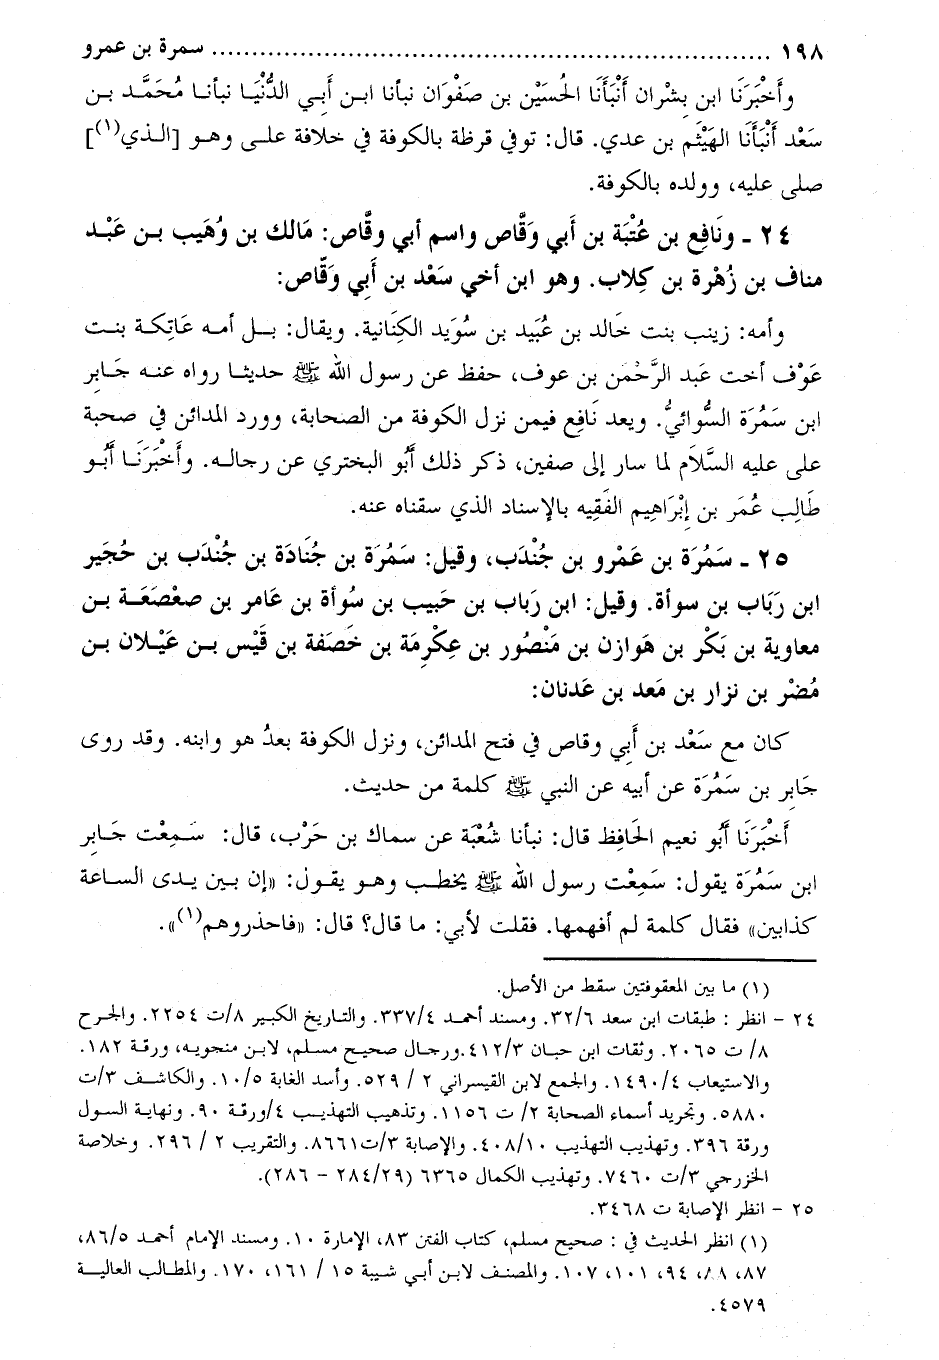 ١٩٨ ........................................................................ سمرة بن عمرو
وأَخْبَرَنَا ابن بِشْران أَنْبَأَنَا الحُسَيْن بن صَفْوَان نبأنا ابن أَبِي الدُّنْيَا نبأنا مُحَمَّد بن
سَعْد أَنْبَأَنَا الهَيْثَم بن عدي. قال: توفي قرظة بالكوفة في خلافة على وهو [الذي(١)]
صلى عليه، وولده بالكوفة.
٢٤ ـ ونَافِع بن عُتْبَة بن أَبي وَقَّاص واسم أبي وقَّاص: مَالك بن وُهَيب بن عَبْد
مناف بن زُهْرة بن كِلاب. وهو ابن أخي سَعْد بن أَبِي وَقَّاص:
وأمه: زينب بنت خَالد بن عُبَيد بن سُوَيد الكِنَانية. ويقال: بل أمه عَاتِكة بنت
عَوْف أخت عَبد الرَّحْمن بن عوف، حفظ عن رسول الله ﷺ حديثا رواه عنه جَابر
ابن سَمُرَة السُّوائيُّ. ويعد نَافِع فيمن نزل الكوفة من الصحابة، وورد المدائن في صحبة
على عليه السَّلاَم لما سار إلى صفين، ذكر ذلك أَبُو البختري عن رجاله. وأَخْبَرَنَا أَبُو
طَالِب عُمَر بن إِبْرَاهِيم الفَقِيه بالإسناد الذي سقناه عنه.
٢٥ ـ سَمُرَة بن عَمْرو بن جُنْدَب، وقيل: سَمُرَة بن جُنَادَة بن جُنْدَب بن حُجَير
ابن رَبَاب بن سوأة. وقيل: ابن رَباب بن حَبيب بن سُوأة بن عَامر بن صعْصَعَة بن
معاوية بن بَكْر بن هَوازن بن مَنْصُور بن عِكْرِمَة بن خَصَفة بن قَيْس بن عَيْلان بن
مُضْر بن نزار بن مَعد بن عَدنان:
كان مع سَعْد بن أَبِي وقاص في فتح المدائن، ونزل الكوفة بعدُ هو وابنه. وقد روى
جَابِر بن سَمُرَة عن أبيه عن النبي ﷺ كلمة من حديث.
أَخْبَرَنَا أَبُو نعيم الحَافِظ قال: نبأنا شُعْبَة عن سماك بن حَرْب، قال: سَمِعْت جَابر
ابن سَمُرَة يقول: سَمِعْت رسول الله ﷺ يخطب وهو يقول: «إن بين يدى الساعة
كذابين» فقال كلمة لم أفهمها. فقلت لأبي: ما قال؟ قال: «فاحذروهم(١)».
(١) ما بين المعقوفتين سقط من الأصل.
٢٤ - انظر : طبقات ابن سعد ٣٢/٦. ومسند أحمد ٣٣٧/٤. والتاريخ الكبير ٨/ت ٢٢٥٤. والجرح
٨/ ت ٢٠٦٥. وثقات ابن حبان ٤١٢/٣.ورجال صحيح مسلم، لابن منجويه، ورقة ١٨٢.
والاستيعاب ١٤٩٠/٤. والجمع لابن القيسراني ٢ / ٥٢٩. وأسد الغابة ١٠/٥. والكاشف ٣/ت
٥٨٨٠. وتجريد أسماء الصحابة ٢/ ت ١١٥٦. وتذهيب التهذيب ٤/ورقة ٩٠. ونهاية السول
ورقة ٣٩٦. وتهذيب التهذيب ٤٠٨/١٠. والإصابة ٣/ت٨٦٦١. والتقريب ٢ / ٢٩٦. وخلاصة
الخزرجي ٣/ت ٧٤٦٠. وتهذيب الكمال ٦٣٦٥ (٢٨٤/٢٩ - ٢٨٦).
٢٥ - انظر الإصابة ت ٣٤٦٨.
(١) انظر الحديث في : صحيح مسلم، كتاب الفتن ٨٣، الإمارة ١٠. ومسند الإمام أحمد ٨٦/٥،
٨٧، ٨٨، ٩٤، ١٠١، ١٠٧. والمصنف لابن أبي شيبة ١٥ / ١٦١، ١٧٠. والمطالب العالية
٤٥٧٩.